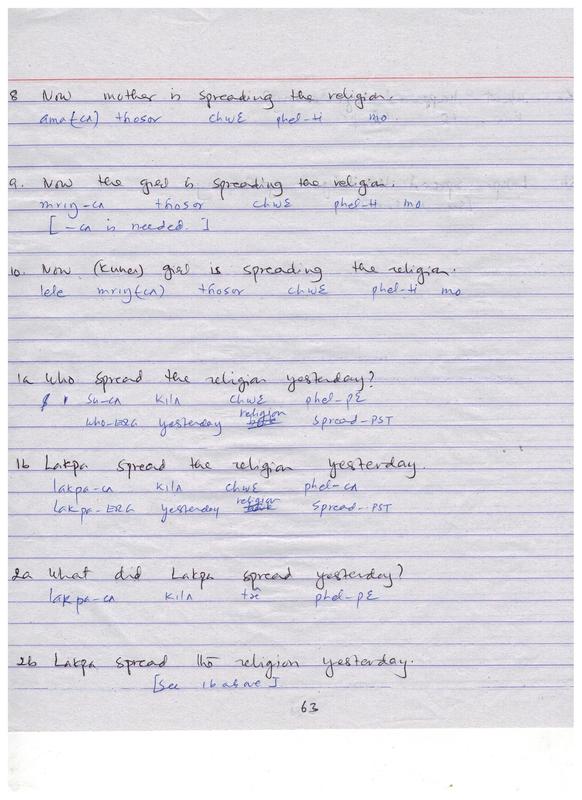 8 Now mother is spreading the religion.
ama(-cʌ) thosor chwɛ phel-ti mo.
9. Now the girl is spreading the religion.
mriŋ-cʌ thosor chwɛ phel-ti mo.
[-cʌ is needed.]
10. Now (Kumari) girl is spreading the religion.
lele mriŋ(cʌ) thosor chwɛ phel-ti mo
1a Who spread the religion yesterday?
su-cʌ kilʌ chwɛ phel-pɛ
who-ERG yesterday religion spread-PST
1b Lakpa spread the religion yesterday.
lakpa-cʌ kilʌ chwɛ phel-cʌ
Lakpa-ERG yesterday religion spread-PST
2a What did Lakpa spread yesterday?
lakpa-cʌ kilʌ phel-pɛ
2b Lakpa spread the religion yesterday.
[See 1b above]
63